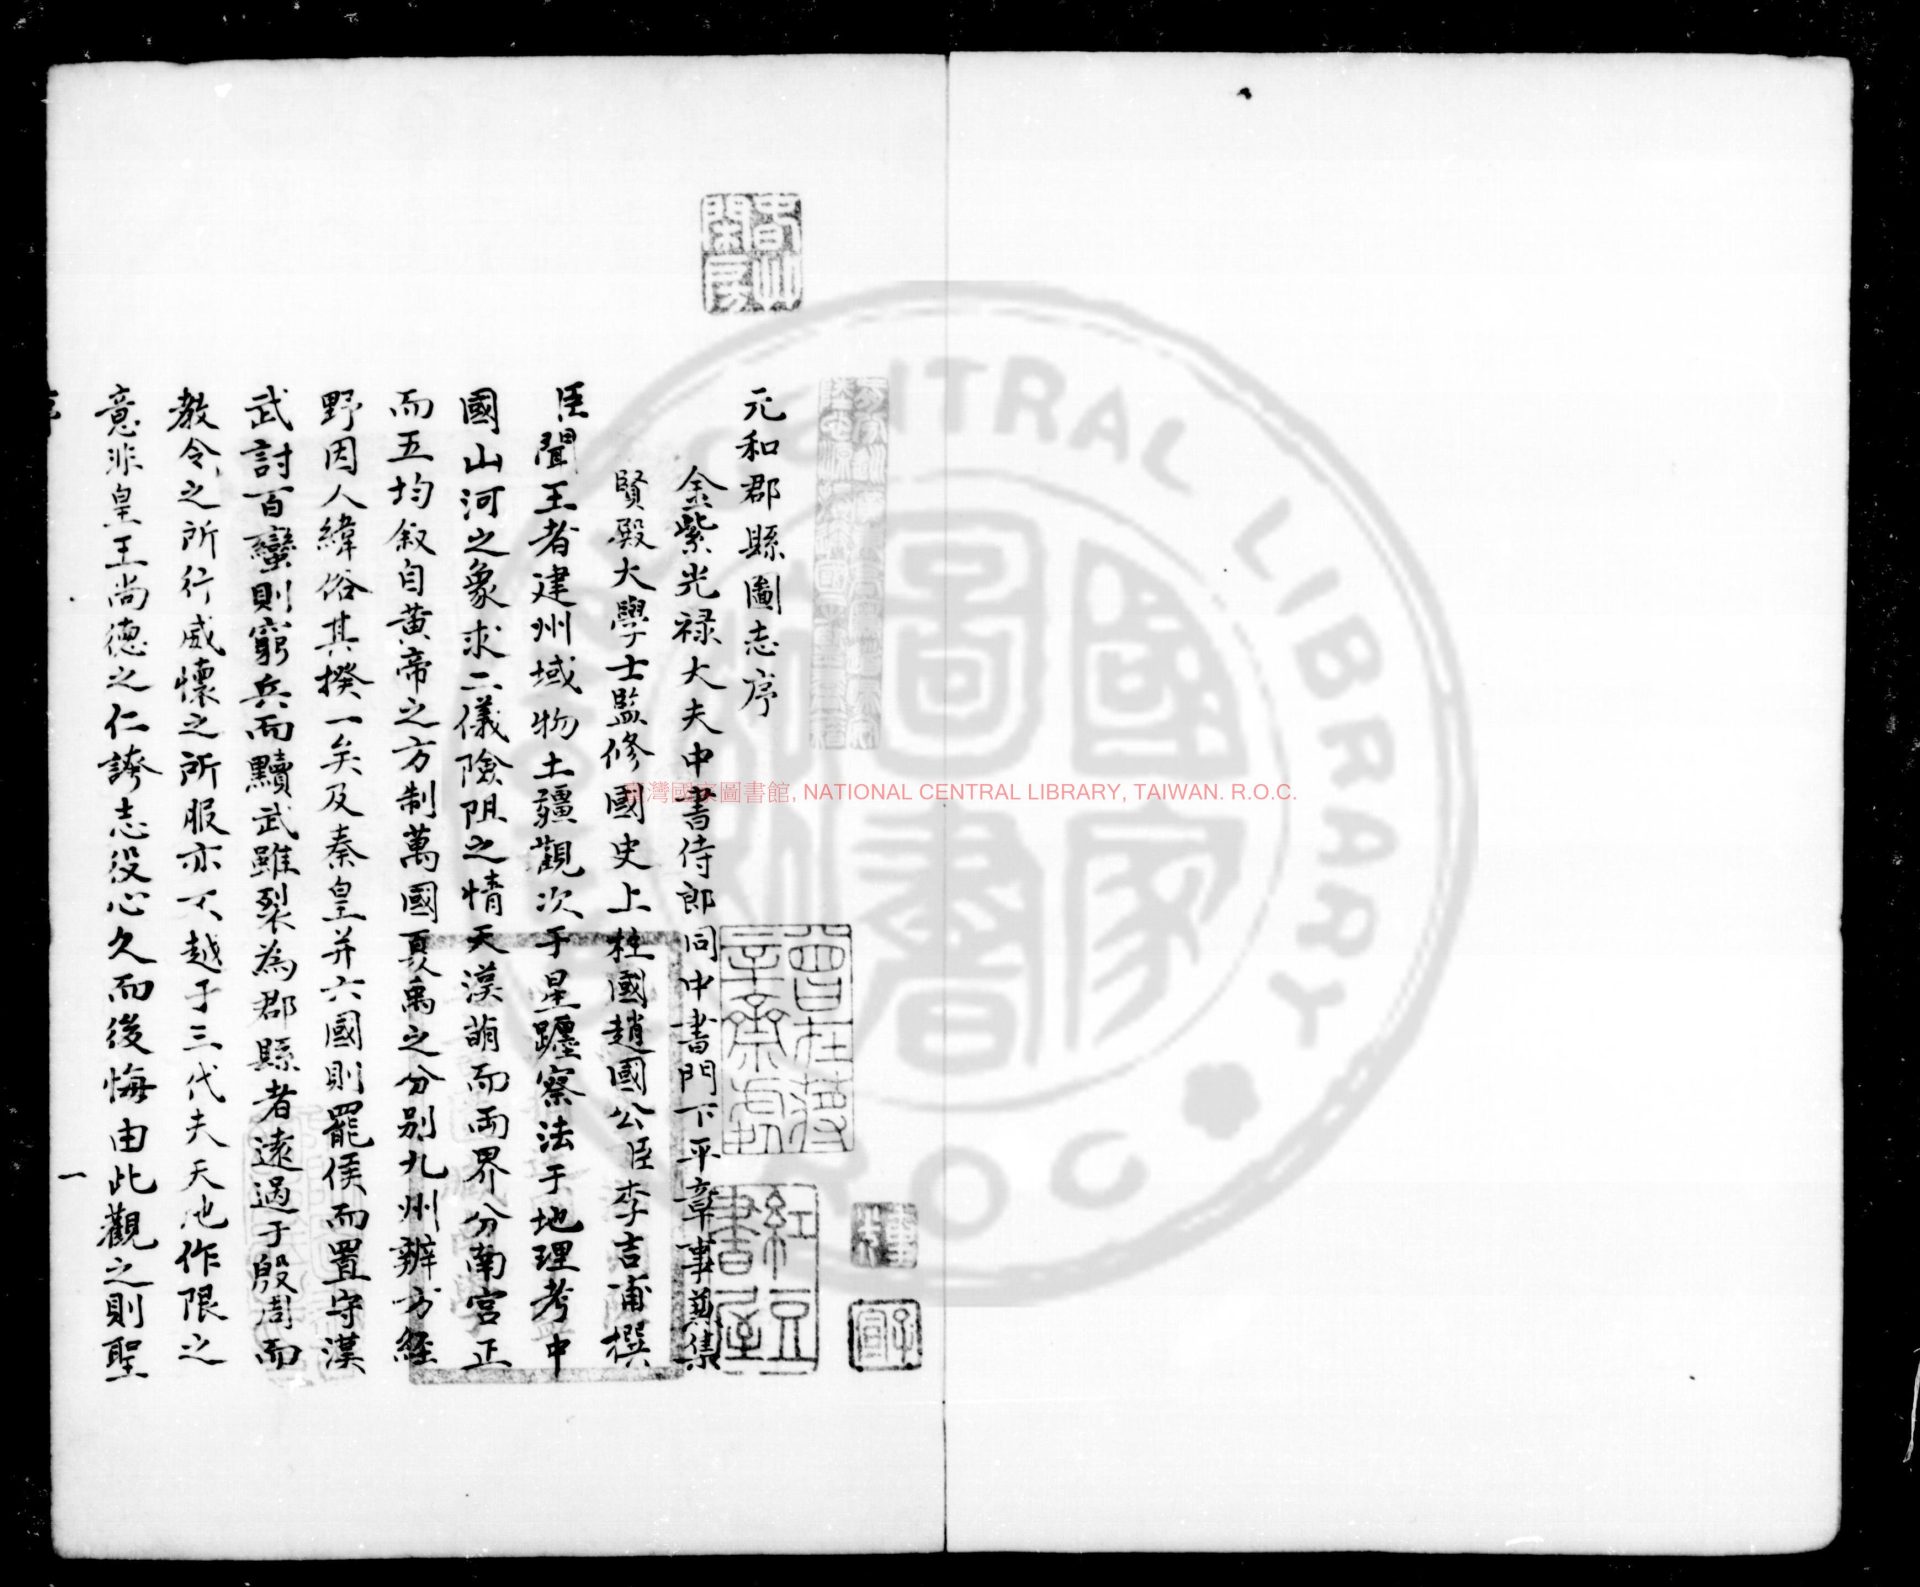 元和郡縣圖志序
金紫光祿大夫中書侍郎同中書門下平章事兼集
賢殿大學士監修國史上柱國趙國公臣李吉甫撰
臣聞王者建州域物土疆觀次于星躔察法于地理考中
國山河之象求二儀險阻之情天漢萌而兩界分南宮正
而五均叙自黄帝之方制萬國夏禹之分别九州辨方經
野因人緯俗其揆一矣及秦皇并六國則罷侯而置守漢
武討百蠻則窮兵而黷武雖裂為郡縣者遠過于殷周而
教令之所行威懷之所服亦不越于三代夫天池作限之
意非皇王尚德之仁誇志役心久而後悔由此觀之則聖
一
春艸閑房
曾在蔣辛齋處
紅豆書屋
臺灣國家圖書館, NATIONAL CENTRAL LIBRARY, TAIWAN. R.O.C.
CENTRAL LIBRARY
R.O.C
國家圖書